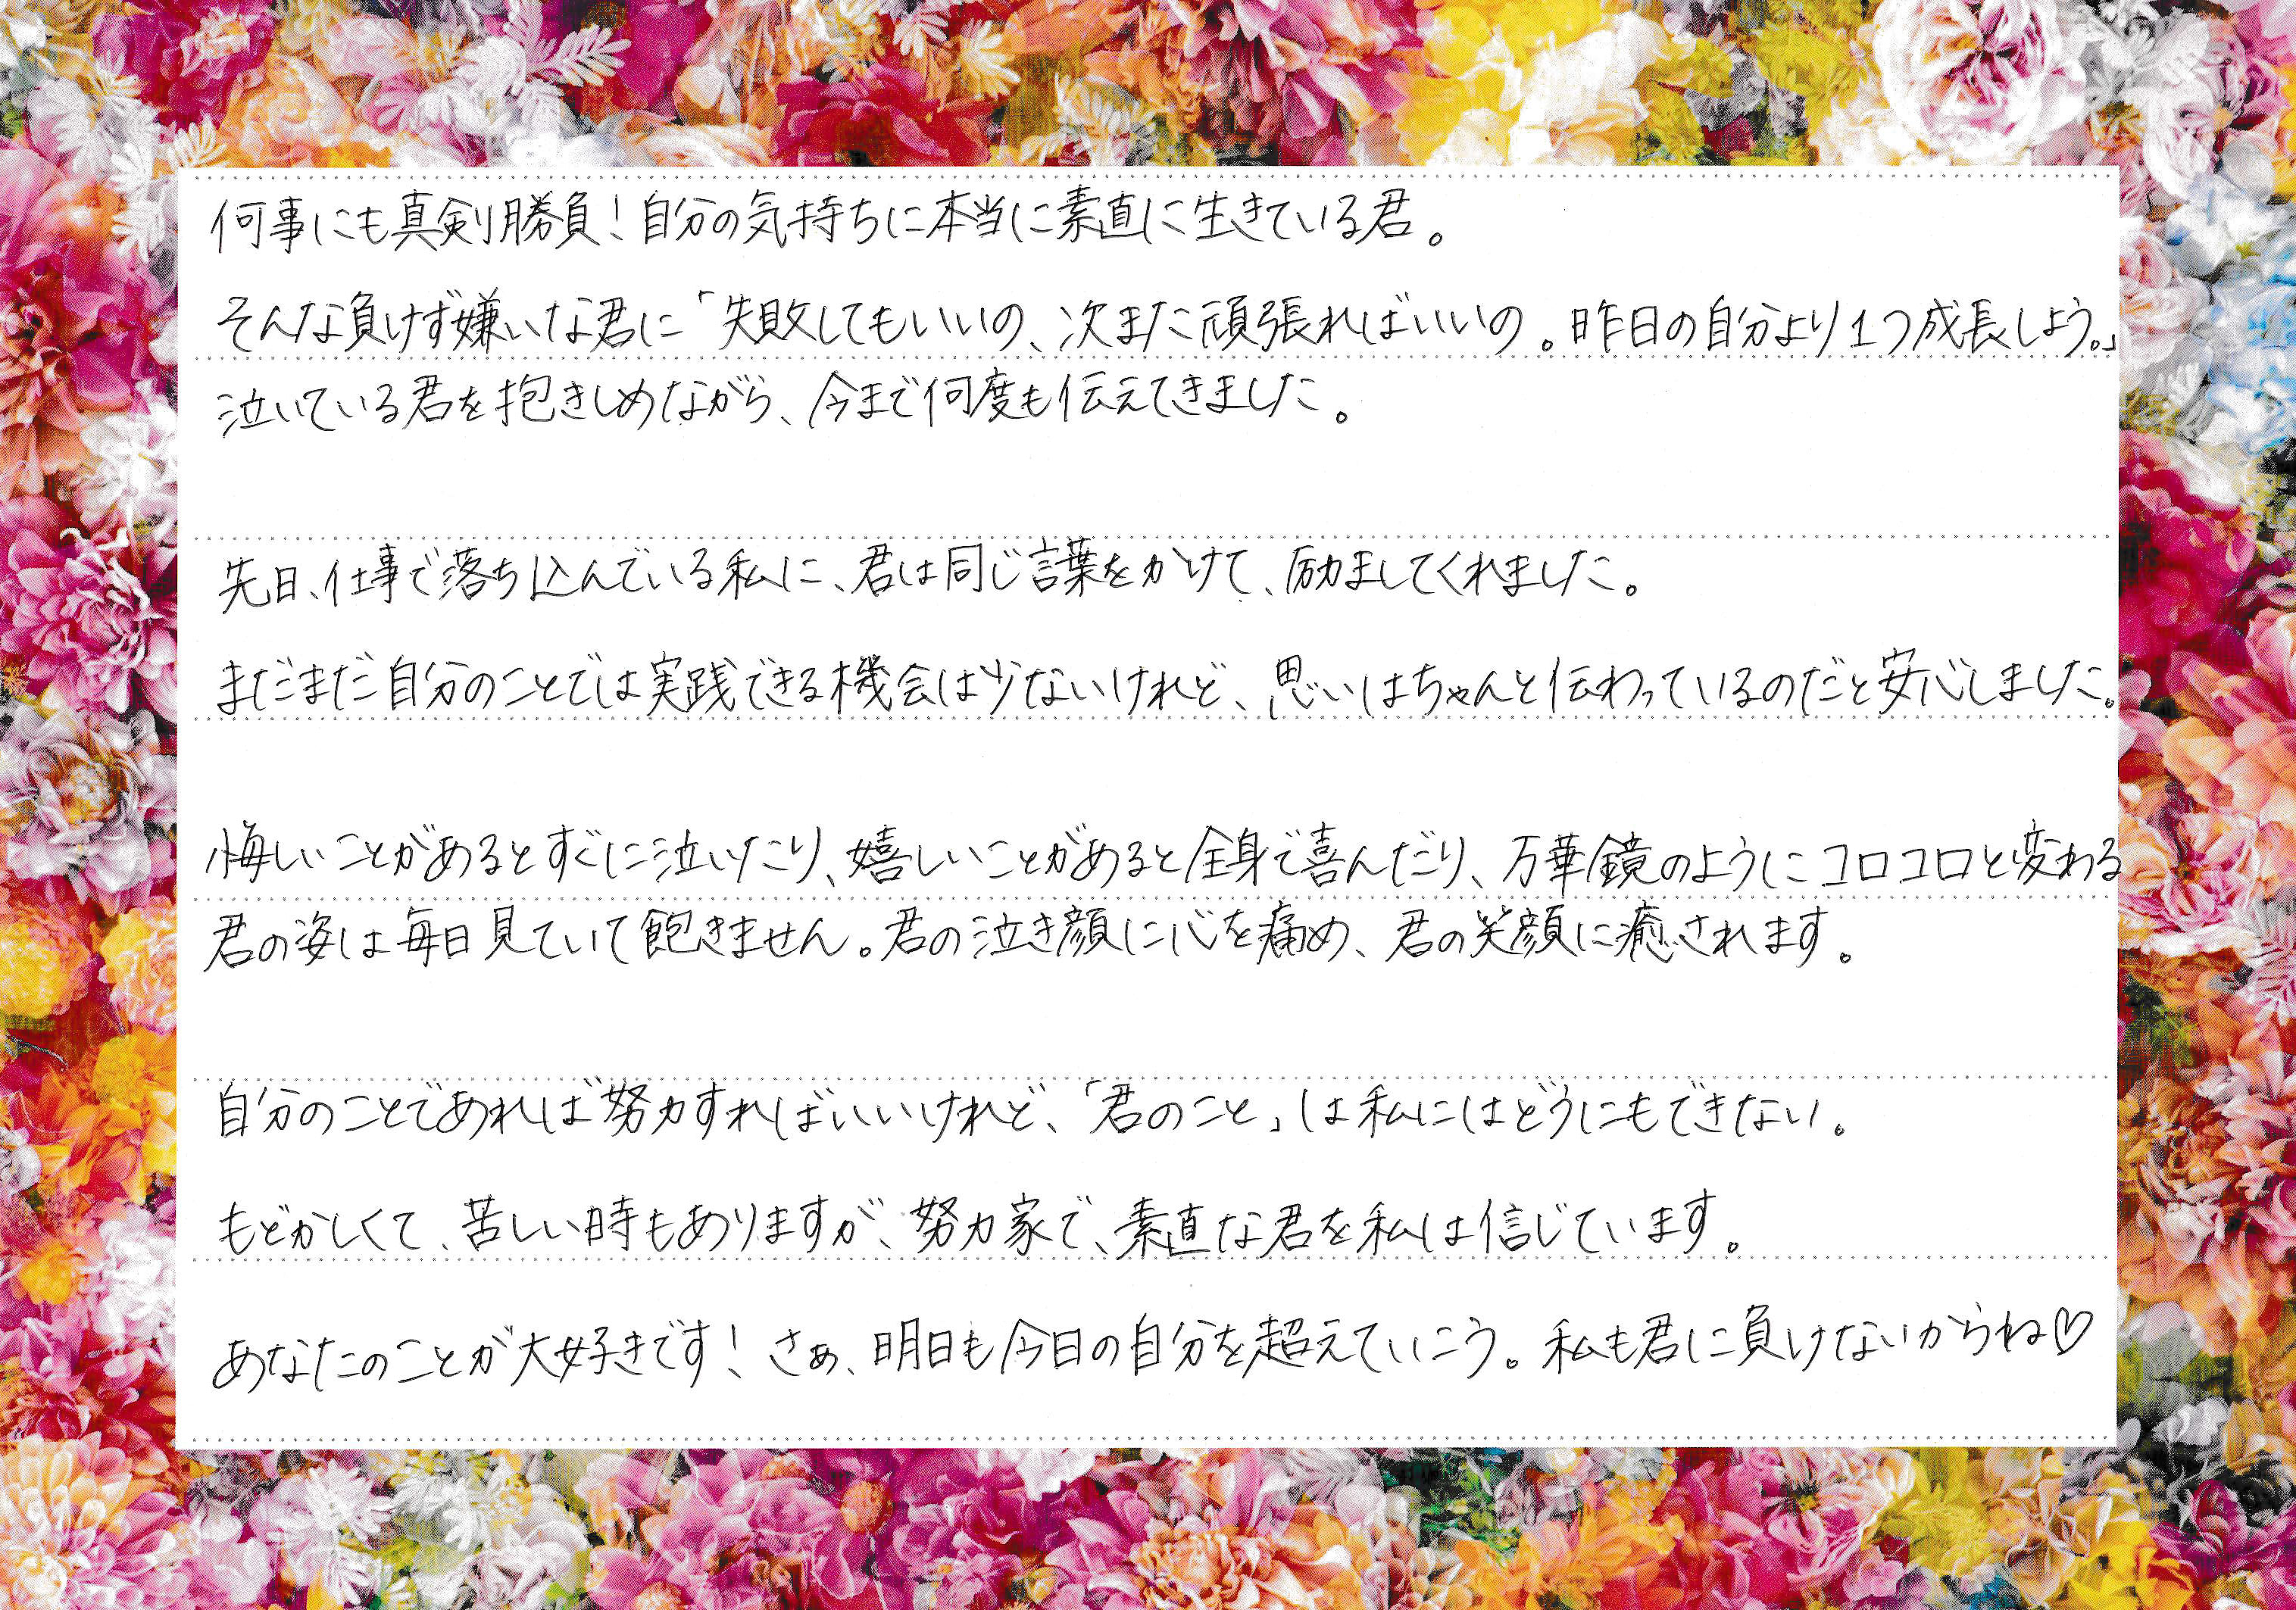 何事にも真剣勝負！自分の気持ちに本当に素直に生きている君。
そんな負けず嫌いな君に「失敗してもいいの、次また頑張ればいいの。昨日の自分より1つ成長しよう。」
泣いている君を抱きしめながら、今まで何度も伝えてきました。
先日、仕事で落ち込んでいる私に、君は同じ言葉をかけて、励ましてくれました。
まだまだ自分のことでは実践できる機会は少ないけれど、思いはちゃんと伝わっているのだと安心しました。
悔しいことがあるとすぐに泣いたり、嬉しいことがあると全身で喜んだり、万華鏡のようにコロコロと変わる
君の姿は毎日見ていて飽きません。君の泣き顔に心を痛め、君の笑顔に癒されます。
自分のことであれば努力すればいいけれど、「君のこと」は私にはどうにもできない。
もどかしくて、苦しい時もありますが、努力家で、素直な君を私は信じています。
あなたのことが大好きです！さぁ、明日も今日の自分を超えていこう。私も君に負けないからね♡